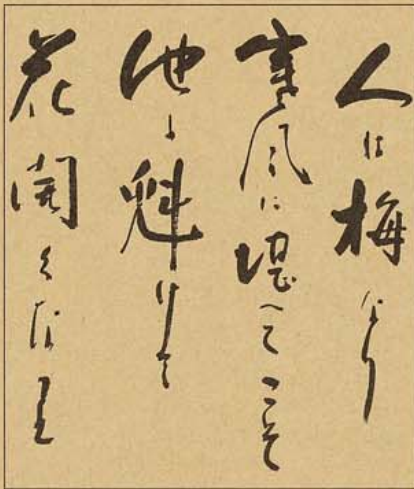 人は梅なり
寒風に堪へてこそ
他に魁けて
花開く